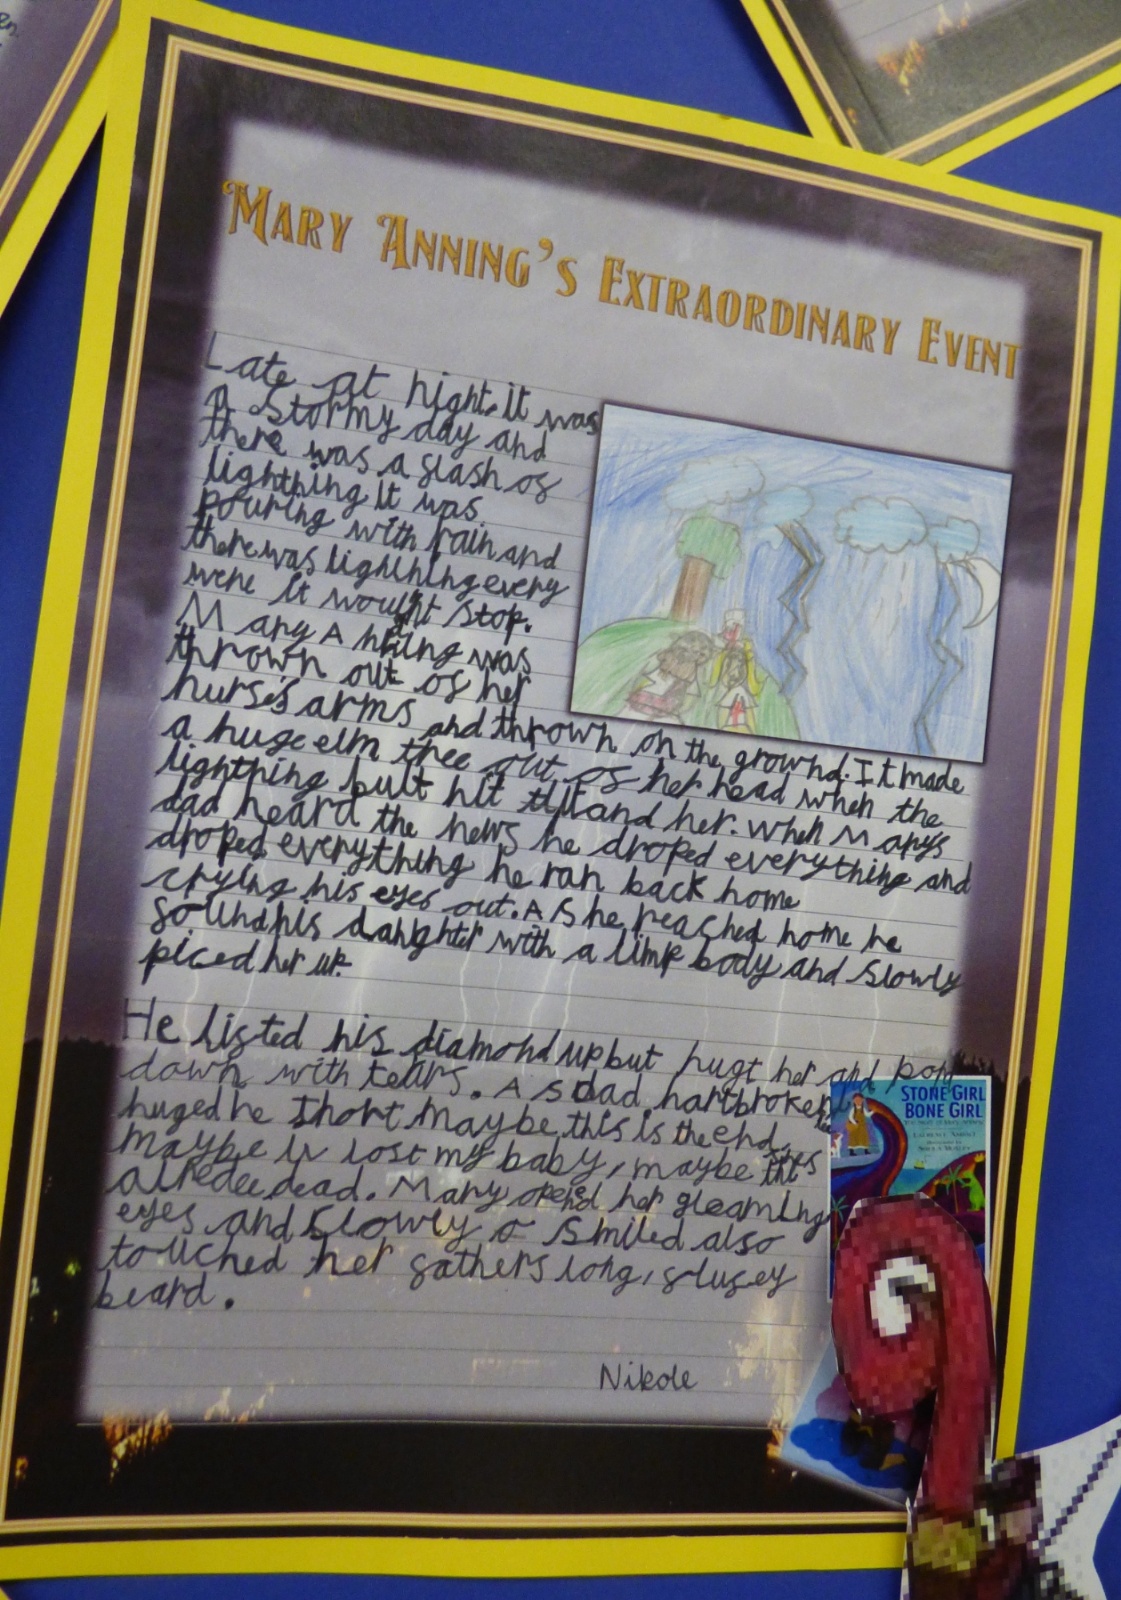 MARY ANNING'S EXTRAORDINARY EVENT
Late at night, it was
a stormy day and
there was a flash of
lightning it was
pouring with rain and
there was lightning every
were it would't stop.
Mary Anning was
thrown out of her
nurse's arms and thrown on the grownd. It made
a huge elm three out of her head when the
lightning bult hit and her. When Marys
dad heard the news he droped everything and
droped everything he ran back home
crying his eyes out. As he reached home he
found his daughter with a limp body and slowly
piced her up.
He lifted his diamond up but hugt her and
down with tears. As dad, hartbroken,
huged he thort maybe this is the end
maybe Iv lost my baby, maybe shes
alredee dead. Mary opend her gleaming
eyes and slowly smiled also
touched her fathers long, flufey
beard.
Nikole
STONE GIRL
BONE GIRL
LAURENCE ANHOLT